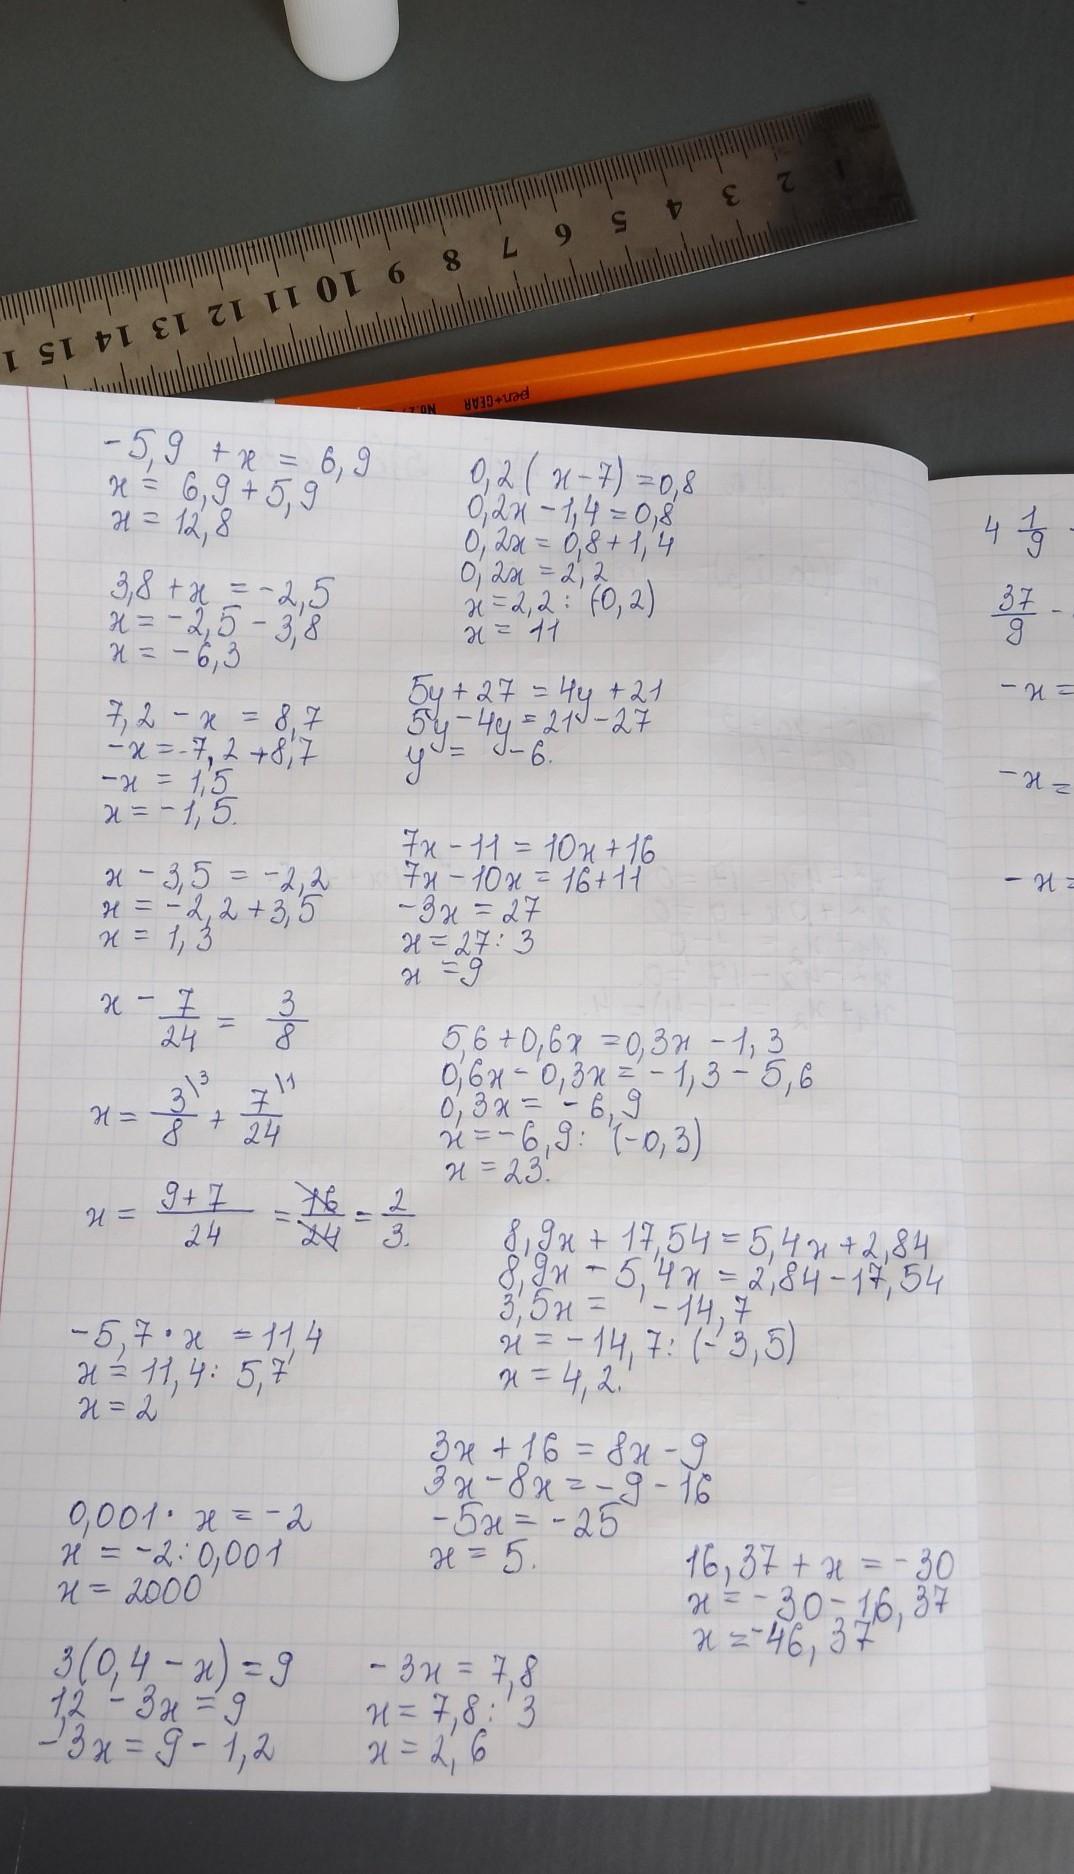 1 2 3 4 5 6 7 8 9 10 11 12 13 14 15 1
pen+GEAR No.2
-5,9 + x = 6,9
x = 6,9 + 5,9
x = 12,8
3,8 + x = -2,5
x = -2,5 - 3,8
x = -6,3
7,2 - x = 8,7
-x = -7,2 + 8,7
-x = 1,5
x = -1,5.
x - 3,5 = -2,2
x = -2,2 + 3,5
x = 1,3
x - 7/24 = 3/8
x = 3\3/8 + 7\1/24
x = 9+7/24 = 16/24 = 2/3.
-5,7 · x = 11,4
x = 11,4 : 5,7
x = 2
0,001 · x = -2
x = -2 : 0,001
x = 2000
3(0,4 - x) = 9
1,2 - 3x = 9
-3x = 9 - 1,2
-3x = 7,8
x = 7,8 : 3
x = 2,6
0,2(x - 7) = 0,8
0,2x - 1,4 = 0,8
0,2x = 0,8 + 1,4
0,2x = 2,2
x = 2,2 : (0,2)
x = 11
5y + 27 = 4y + 21
5y - 4y = 21 - 27
y = -6.
7x - 11 = 10x + 16
7x - 10x = 16 + 11
-3x = 27
x = 27 : 3
x = 9
5,6 + 0,6x = 0,3x - 1,3
0,6x - 0,3x = -1,3 - 5,6
0,3x = -6,9
x = -6,9 : (-0,3)
x = 23.
8,9x + 17,54 = 5,4x + 2,84
8,9x - 5,4x = 2,84 - 17,54
3,5x = -14,7
x = -14,7 : (-3,5)
x = 4,2.
3x + 16 = 8x - 9
3x - 8x = -9 - 16
-5x = -25
x = 5.
16,37 + x = -30
x = -30 - 16,37
x = -46,37
4 1/9 -
37/9 -
-x =
-x =
-x =